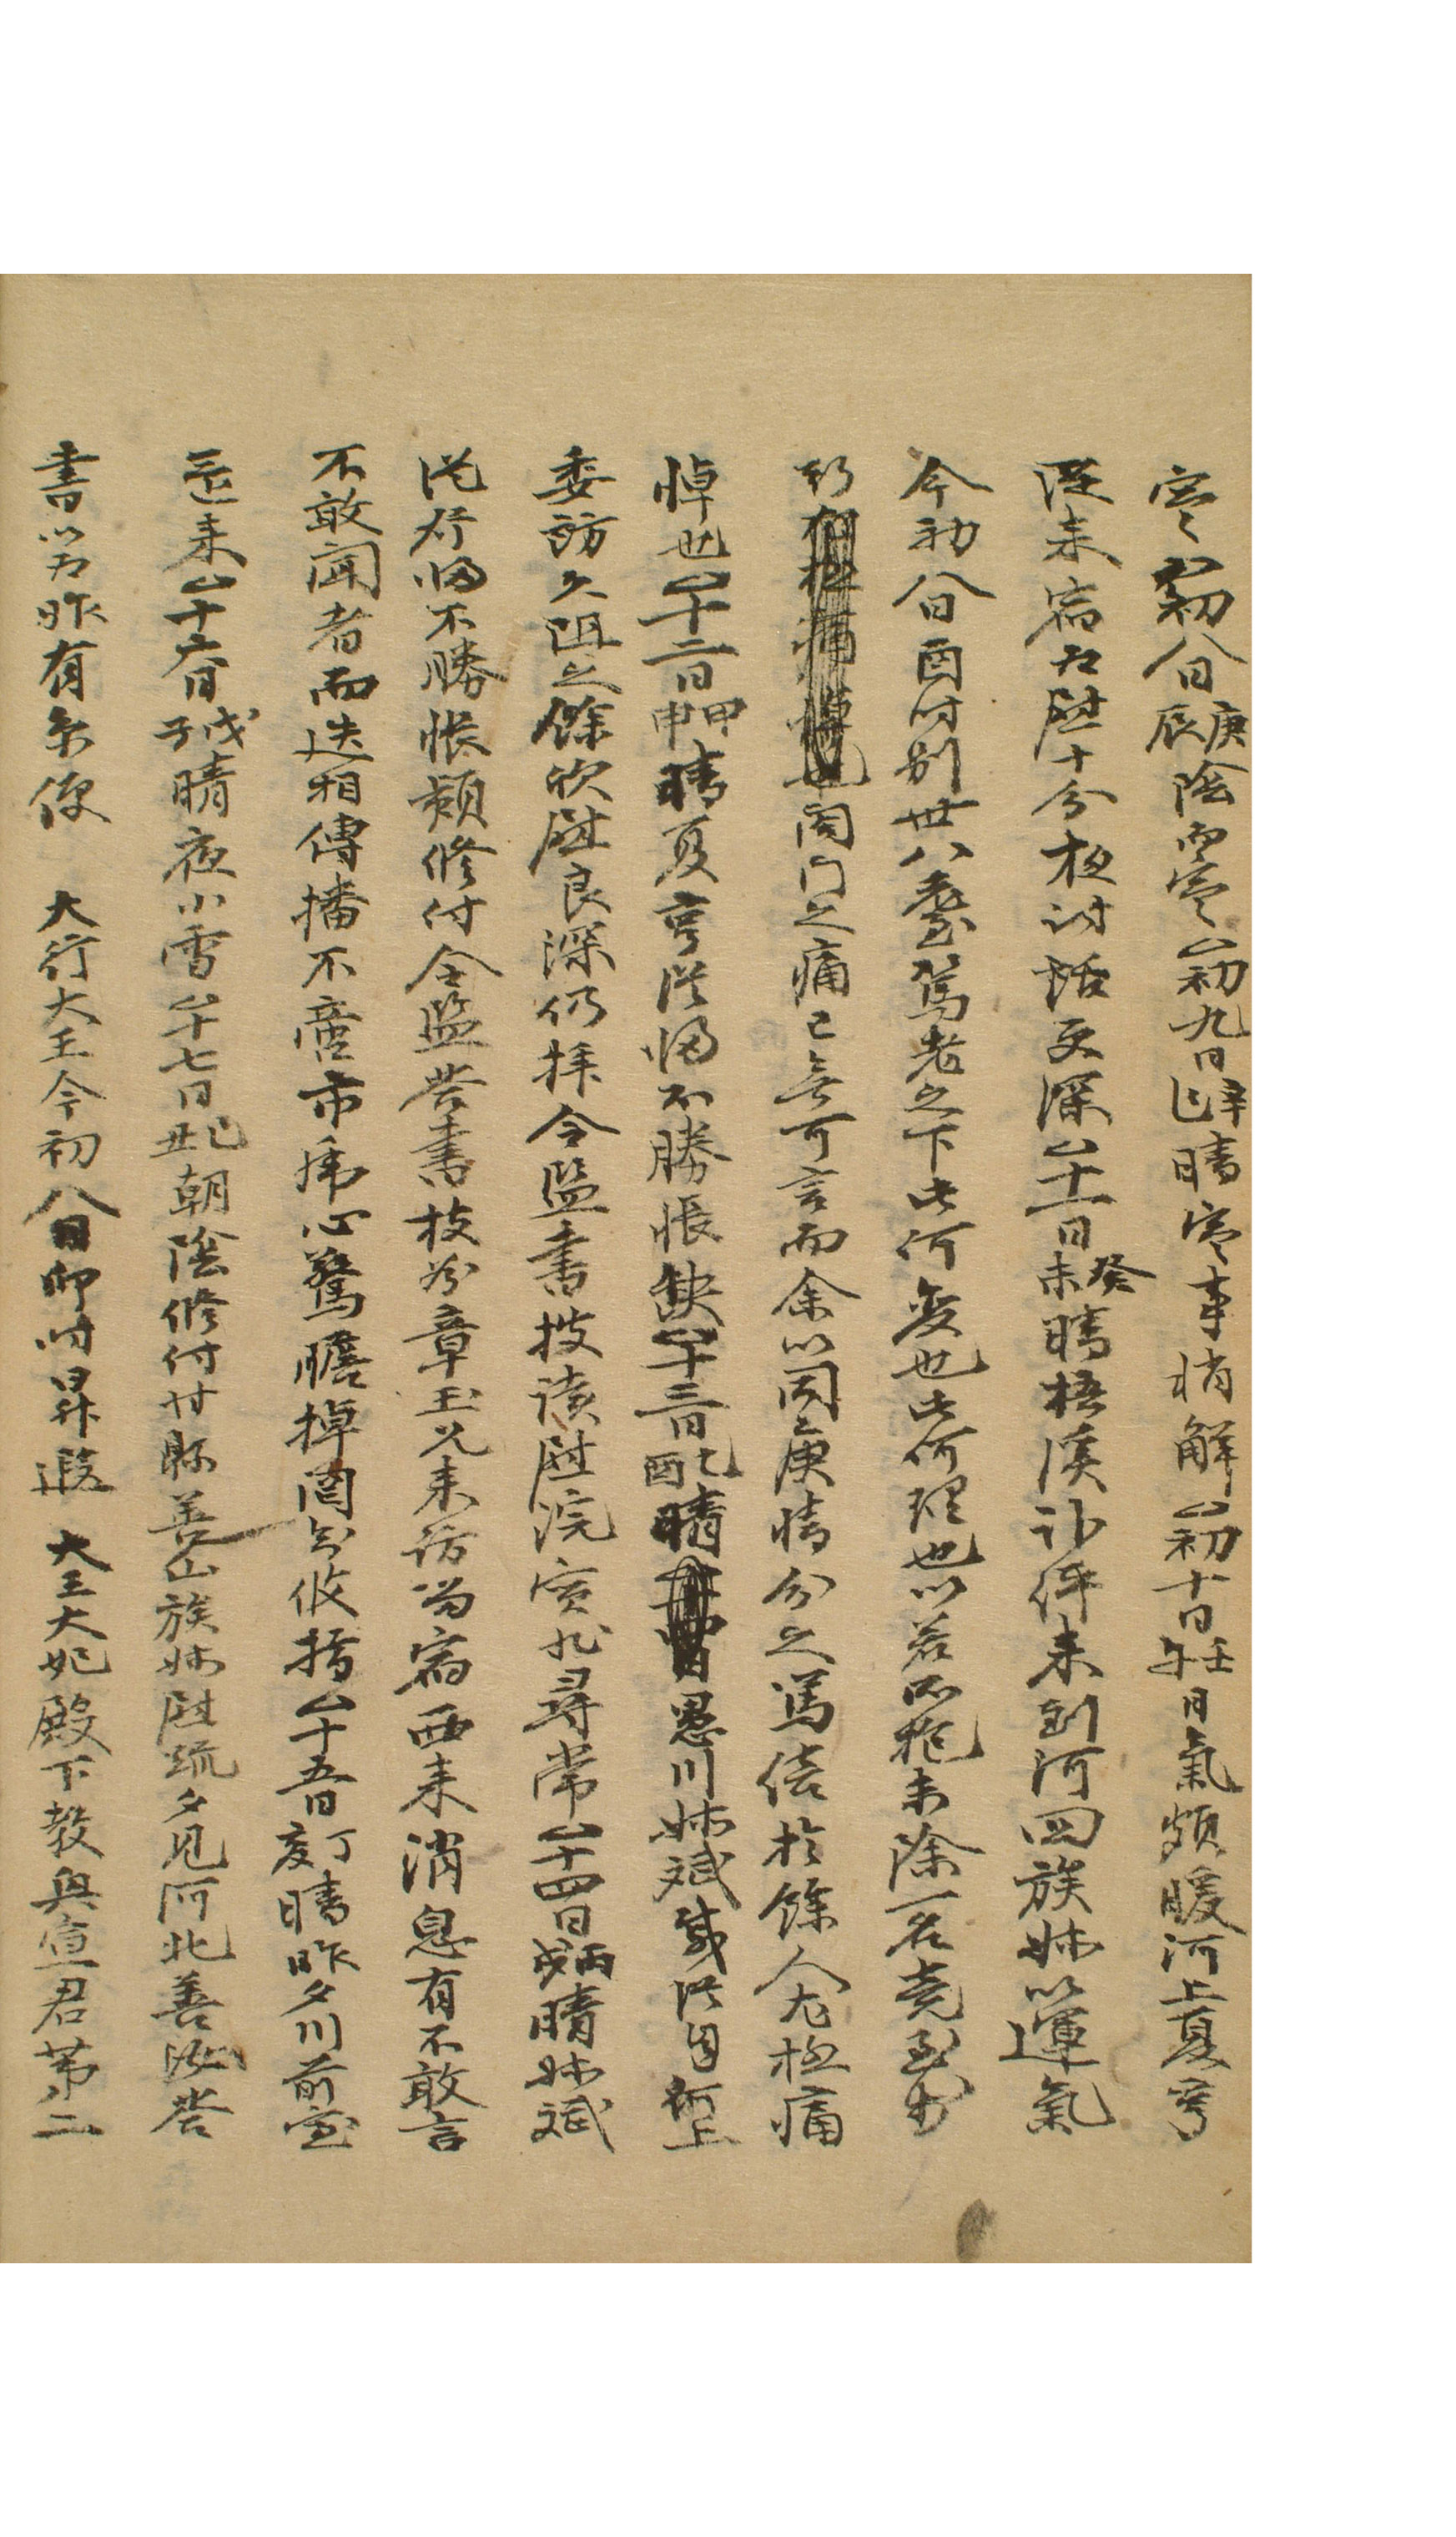 寒 初八日庚辰陰而寒 初九日辛巳晴寒事稍解 初十日壬午日氣頗暖河上夏亨
從來宿石慰十分夜討話更深 十一日癸未晴梧溪訃伻來到河回族妹以運氣
今初八日酉時別世八耋篤老之下此何變也此何理也以若不袍未除一名
門之痛已無可言而余以同庚情分之篤倍於餘人尤極痛
悼也 十二日甲申晴夏亨從歸不勝悵缺 十三日乙酉晴 愚川妹斌成從自河上
委訪久阻之餘欣慰良深仍拜令監書披讀慰浣實非尋常 十四日丙戌晴妹斌
從行歸不勝悵頹修付令監答書枝谷章玉兄來訪留宿西來消息有不敢言
不敢聞者而迭相傳播不啻市虎心驚膽掉罔知攸措 十五日丁亥晴昨夕川前室
還來 十六日戊子晴夜小雪 十七日己丑朝陰修付甘縣善山族妹慰疏夕見河北善汝答
書以為昨有京便 大行大王今初八日卯時昇遐 大王大妃殿下教興宣君第二